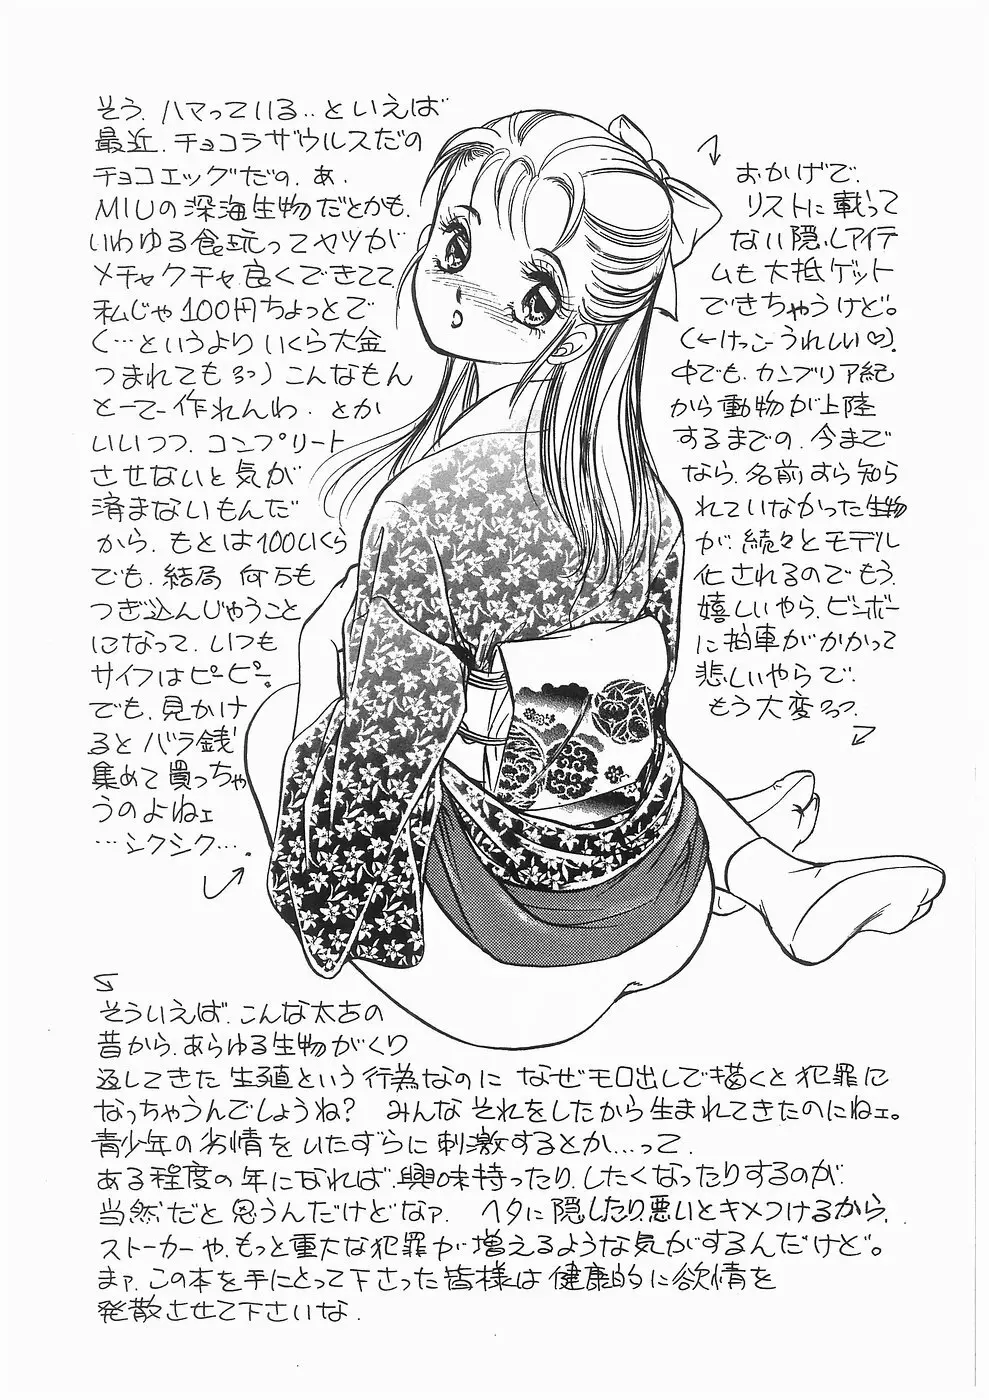 そう、ハマっている‥といえば
最近、チョコラザウルスだの
チョコエッグだの、あ、
MIUの深海生物だとかも、
いわゆる食玩ってヤツが
メチャクチャ良くできてて、
私じゃ100円ちょっとで
く…というよりいくら大金
つまれても)こんなもん
とーてー作れんわ、とか
いいつつ、コンプリート
させないと気が
済まないもんだ
から、もとは100いくら
でも、結局 何万も
つぎ込んじゃうこと
になって、いつも
サイフはピーピー。
でも、見かけ
るとバラ銭
集めて買っちゃ
うのよねェ
…シクシク…。
おかげで、
リストに載って
ない隠しアイテ
ムも大抵ゲット
できちゃうけど。
(←けっこーうれしい♡)。
中でも、カンブリア紀
から動物が上陸
するまでの、今まで
なら、名前すら知ら
れていなかった生物
が、続々とモデル
化されるのでもう、
嬉しいやら、ビンボー
に拍車がかかって
悲しいやらで、
もう大変
そういえば、こんな太古の
昔から、あらゆる生物がくり
返してきた生殖という行為なのに なぜモロ出しで描くと犯罪に
なっちゃうんでしょうね? みんなそれをしたから生まれてきたのにねェ。
青少年の劣情をいたずらに刺激するとか…って、
ある程度の年になれば、興味持ったり、したくなったりするのが、
当然だと思うんだけどなァ. ヘタに隠したり、悪いとキメつけるから、
ストーカーや、もっと重大な犯罪が増えるような気がするんだけど。
まァ、この本を手にとって下さった皆様は健康的に欲情を
発散させて下さいな.